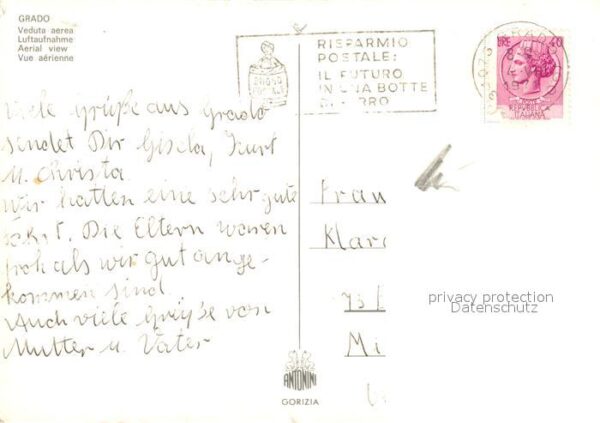 GRADO
Veduta aerea
Luftaufnahme
Aerial view
Vue aérienne
RISPARMIO
POSTALE:
IL FUTURO
IN UNA BOTTE
DI FERRO
LIRE 40
REPUBBLICA
ITALIANA
Viele Grüße aus Grado
sendet Dir Gisela, Kurt
u. Christa.
Wir hatten eine sehr gute
Fahrt. Die Eltern waren
froh als wir gut ange-
kommen sind.
Auch viele Grüße von
Mutter u. Vater
Frau
Klar
Mi
privacy protection
Datenschutz
ANTONINI
GORIZIA